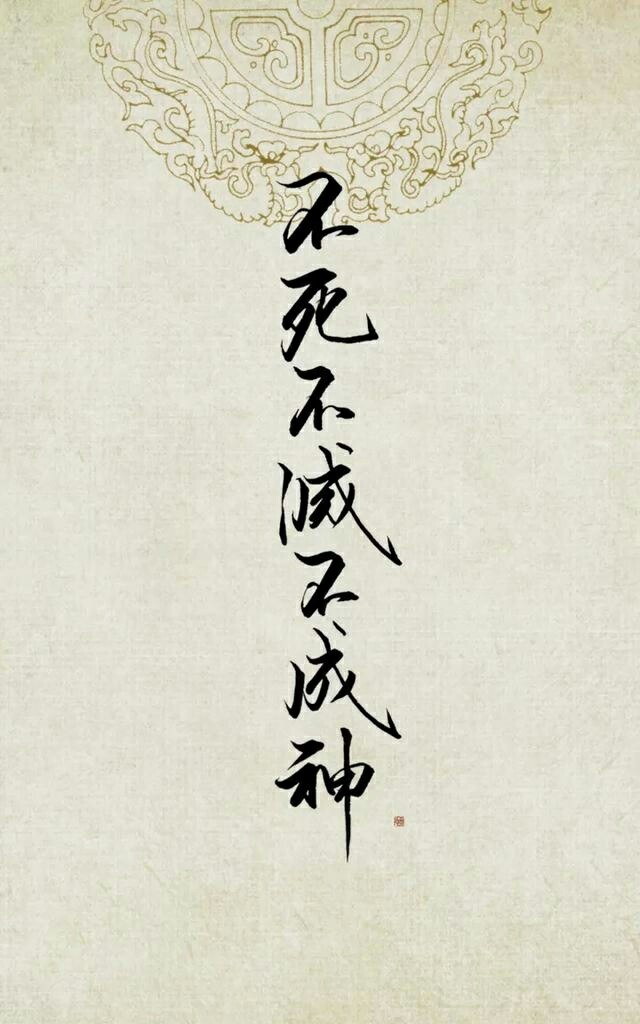 不死不滅不成神